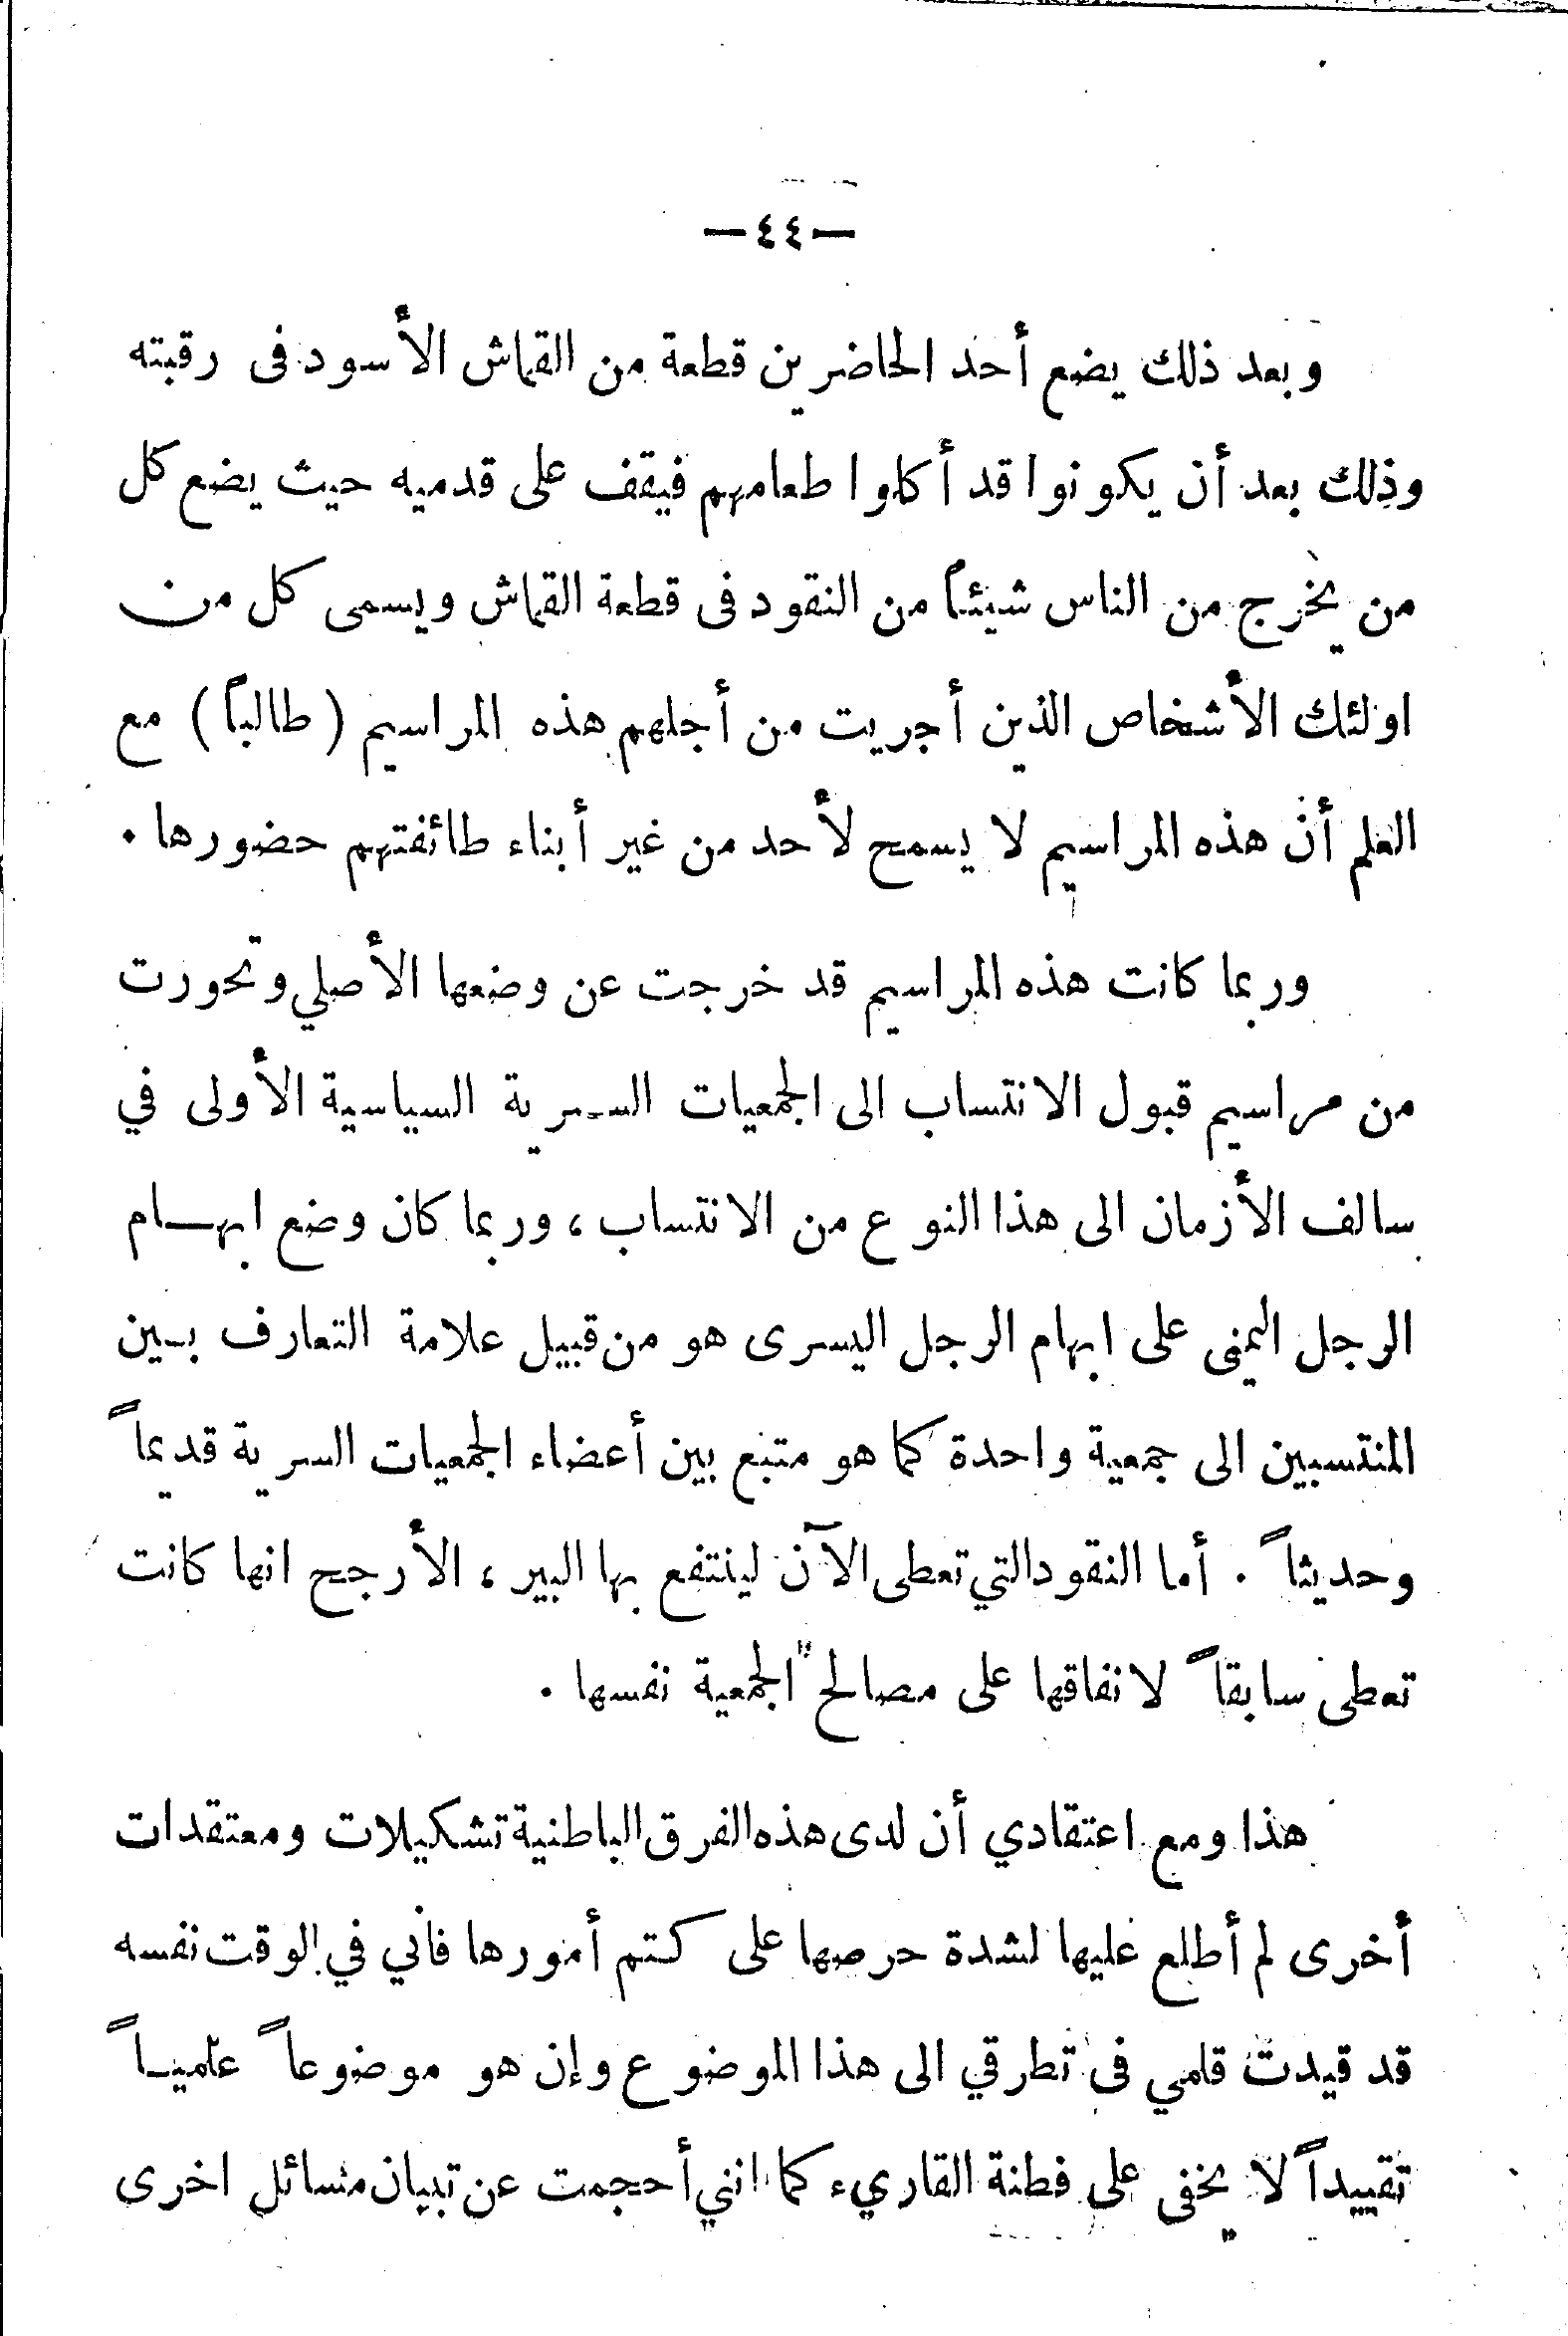 —٤٤—
وبعد ذلك يضع أحد الحاضرين قطعة من القماش الأسود فى رقبته
وذلك بعد أن يكونوا قد أكلوا طعامهم فيقف على قدميه حيث يضع كل
من يخرج من الناس شيئاً من النقود فى قطعة القماش ويسمى كل من
اولئك الأشخاص الذين أجريت من أجلهم هذه المراسيم ( طالباً ) مع
العلم أن هذه المراسيم لا يسمح لأحد من غير أبناء طائفتهم حضورها .
وربما كانت هذه المراسيم قد خرجت عن وضعها الأصلي وتحورت
من مراسيم قبول الانتساب الى الجمعيات السرية السياسية الأولى في
سالف الأزمان الى هذا النوع من الانتساب ، وربما كان وضع ابهام
الرجل اليمنى على ابهام الرجل اليسرى هو من قبيل علامة التعارف بين
المنتسبين الى جمعية واحدة كما هو متبع بين أعضاء الجمعيات السرية قديماً
وحديثاً . أما النقود التي تعطى الآن لينتفع بها البير ، الأرجح انها كانت
تعطى سابقاً لانفاقها على مصالح الجمعية نفسها .
هذا ومع اعتقادي أن لدى هذه الفرق الباطنية تشكيلات ومعتقدات
أخرى لم أطلع عليها لشدة حرصها على كتم أمورها فأني في الوقت نفسه
قد قيدت قلمي فى تطرقي الى هذا الموضوع وإن هو موضوعاً علمياً
تقييداً لا يخفى على فطنة القاريء كما انني أحجمت عن تبيان مسائل اخرى